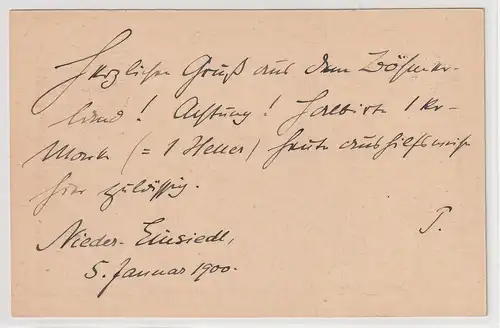 Herzlichen Gruß aus dem Böhmer-
land! Achtung! Halbirte 1 kr-
Marke (= 1 Heller) heute aushilfsweise
hier zulässig.
Nieder-Einsiedl,
5. Januar 1900.
P.